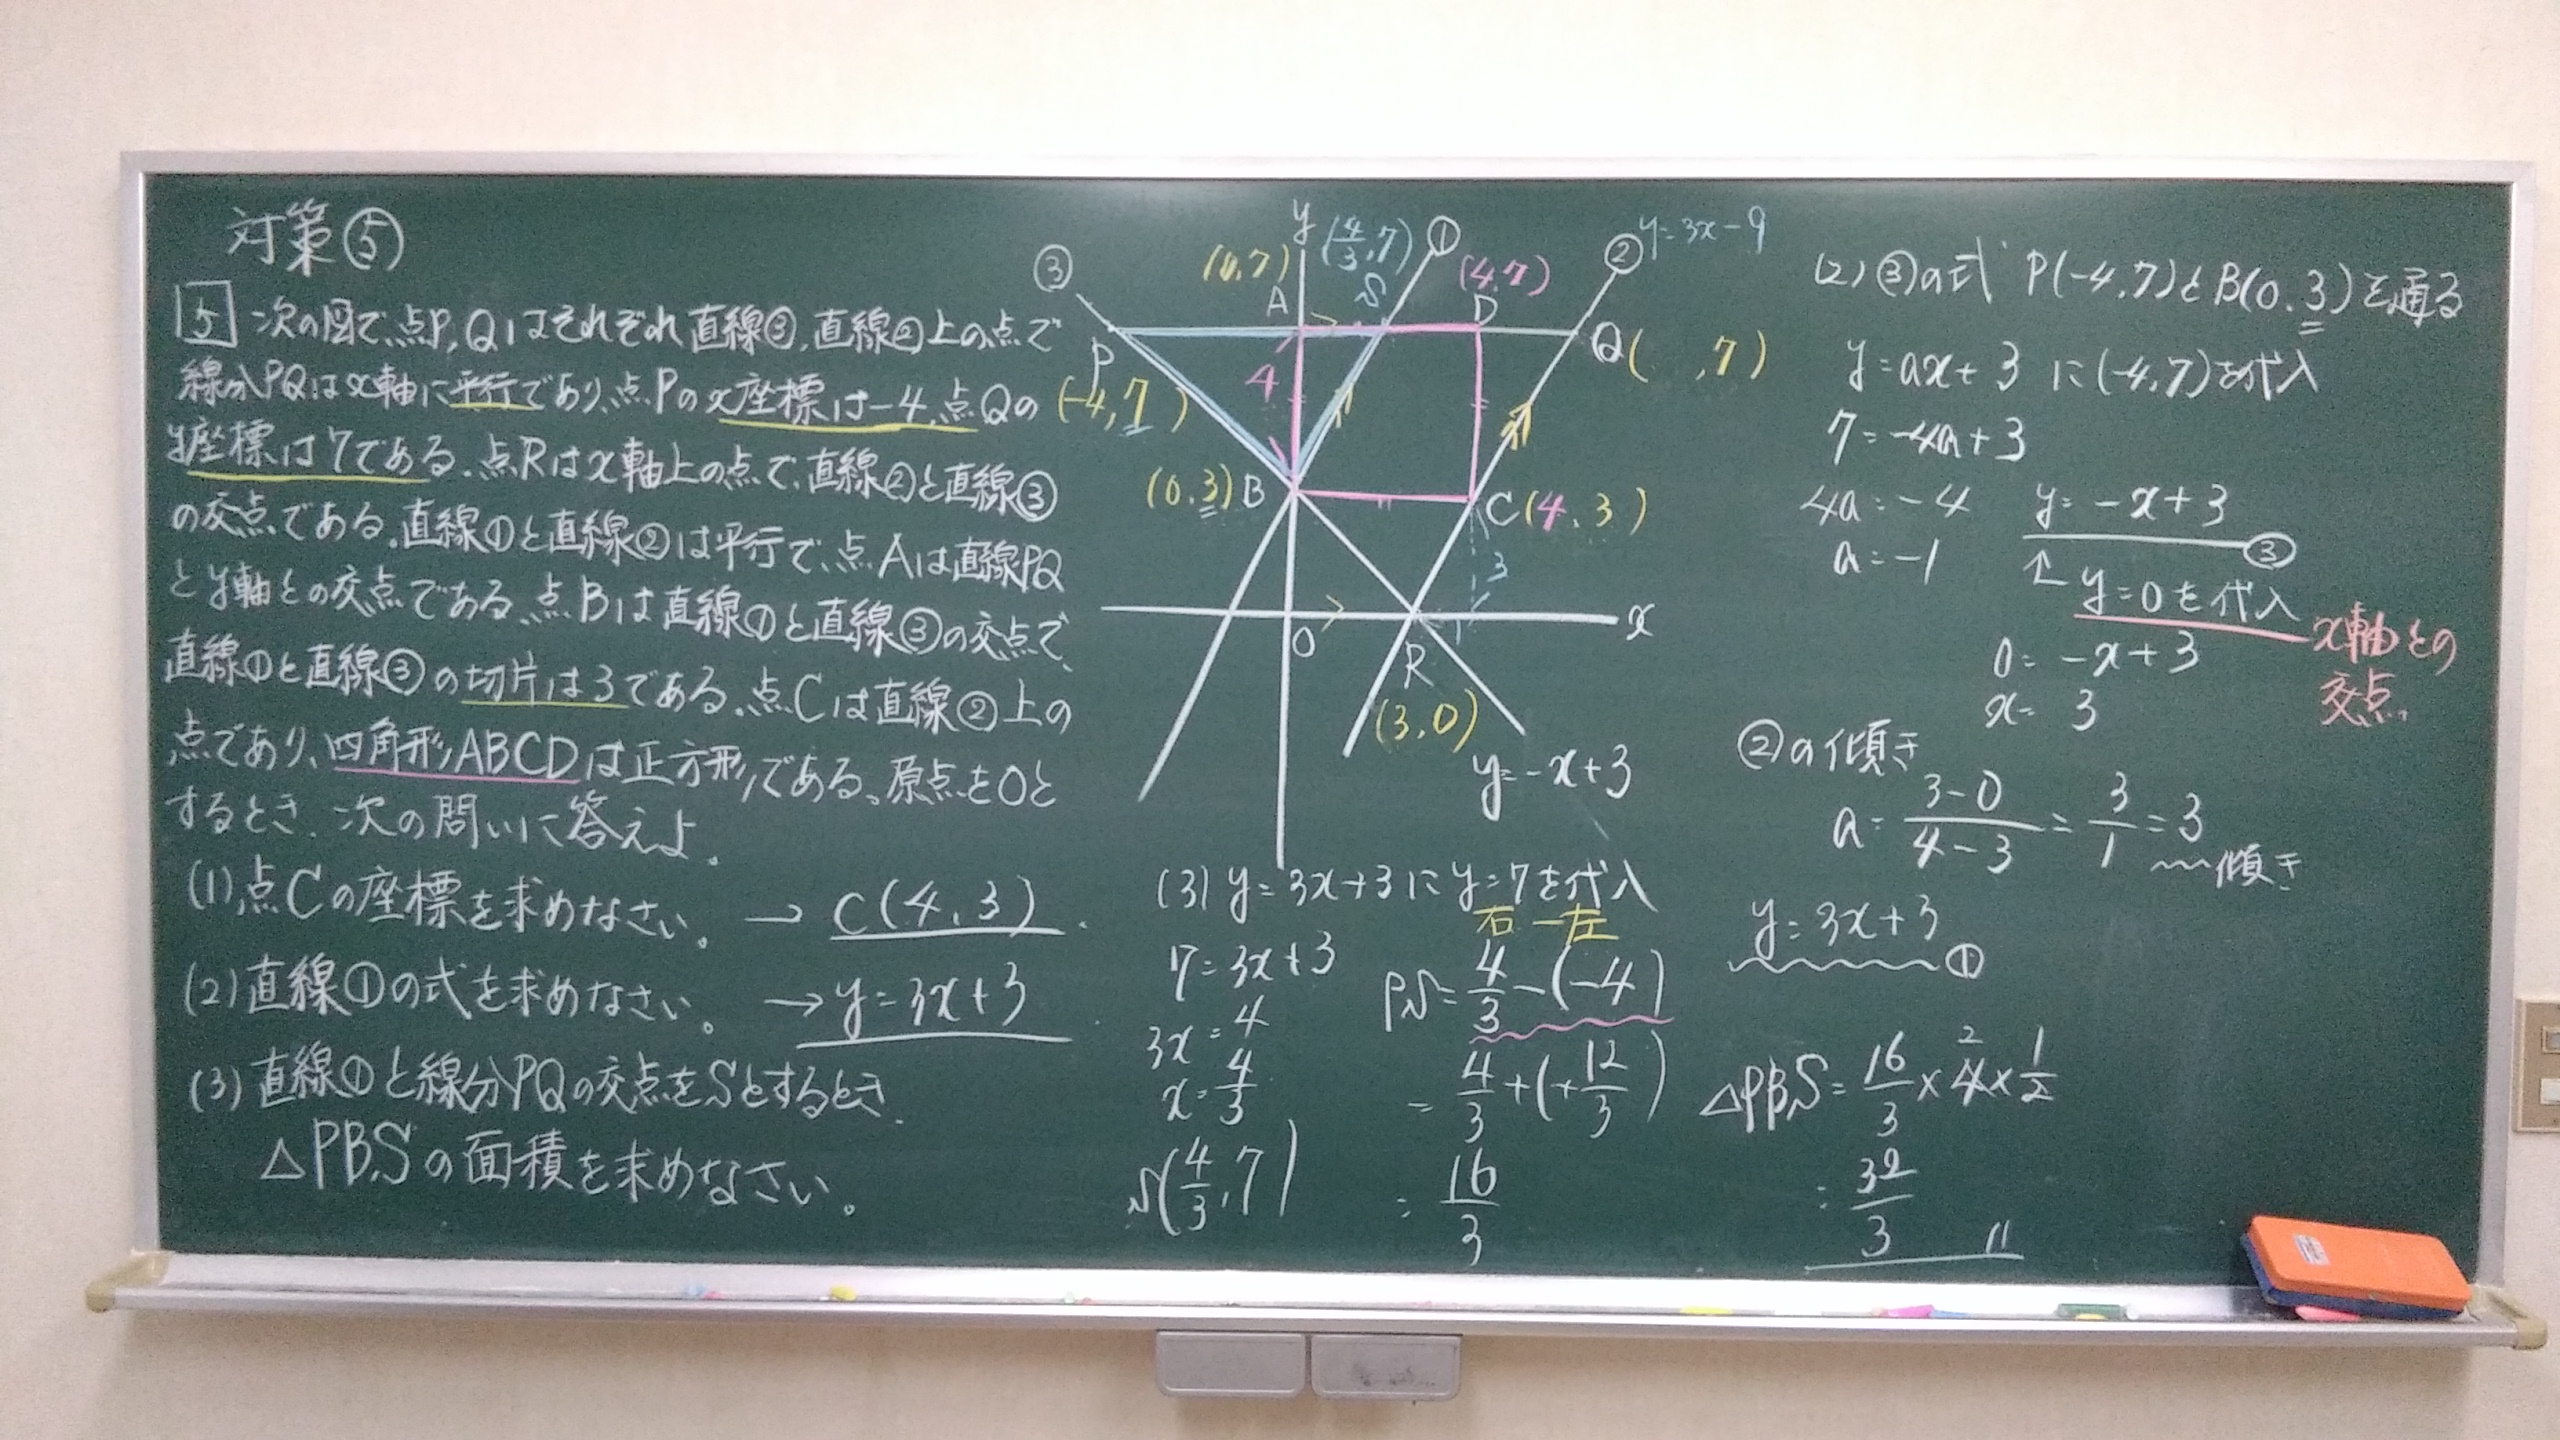 対策⑤
5 次の図で、点P,Qはそれぞれ直線③,直線②上の点で
線分PQはx軸に平行であり、点Pのx座標は-4、点Qの
y座標は7である。点Rはx軸上の点で、直線②と直線③
の交点である。直線①と直線②は平行で、点Aは直線PQ
とy軸との交点である。点Bは直線①と直線③の交点で、
直線①と直線③の切片は3である。点Cは直線②上の
点であり、四角形ABCDは正方形である。原点をOと
するとき、次の問いに答えよ。
(1)点Cの座標を求めなさい。 → C(4,3)
(2)直線①の式を求めなさい。 → y=3x+3
(3)直線①と線分PQの交点をSとするとき、
△PBSの面積を求めなさい。
③
y
(0,7)
A
(4/3,7)
S
①
(4,7)
D
②
y=3x-9
P
(-4,7)
Q( ,7)
4
(0,3) B
C(4,3)
3
1
O
R
x
(3,0)
y=-x+3
(3) y=3x+3にy=7を代入
7=3x+3
3x=4
x=4/3
S(4/3,7)
右-左
PS=4/3-(-4)
=4/3+(+12/3)
=16/3
(2) ③の式 P(-4,7)とB(0,3)を通る
y=ax+3 に(-4,7)を代入
7=-4a+3
4a=-4
a=-1
y=-x+3 ③
↑ y=0を代入
x軸との
交点
0=-x+3
x=3
②の傾き
a=3-0/4-3=3/1=3
傾き
y=3x+3 ①
△PBS=16/3×4×1/2
2
=32/3